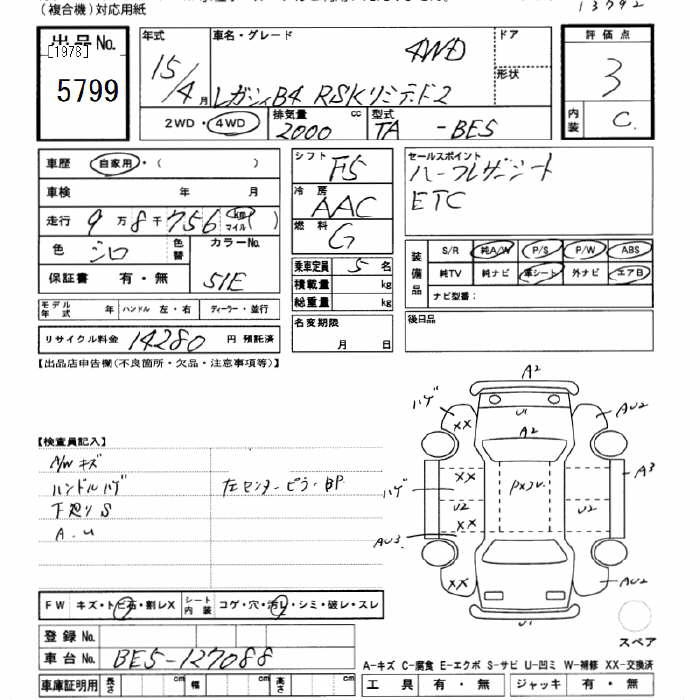 (複合機)対応用紙
13792
出品No.
[1978]
5799
年式
15/4月
車名・グレード
4WD
レガシィB4 RSKリミテッド2
ドア
形状
評価点
3
内装
C.
2WD・4WD
排気量
2000 cc
型式
TA - BE5
車歴 自家用・( )
車検 年 月
走行 9万8千756 km マイル ( )
色 シロ
色替
カラーNo.
51E
保証書 有・無
モデル年式 年
ハンドル 左・右
ディーラー・並行
リサイクル料金 14280 円 預託済
シフト F5
冷房 AAC
燃料 G
乗車定員 5 名
積載量 kg
総重量 kg
名変期限
月 日
セールスポイント
ハーフレザーシート
ETC
装備品
S/R 純A/W P/S P/W ABS
純TV 純ナビ 革シート 外ナビ エアB
ナビ型番:
後日品
【出品店申告欄(不良箇所・欠品・注意事項等)】
【検査員記入】
A/W キズ
ハンドルハゲ
左センターピラーBP
下廻りS
A.U
A2
ハゲ
XX
U1
AU2
A2
XX
PXコレ
A3
ハゲ
U2
U2
XX
AU3
XX
AU2
U1
スペア
FW キズ・トビ石・割レX
シート内装 コゲ・穴・汚レ・シミ・破レ・スレ
登録No.
車台No. BE5-127088
車庫証明用 長さ cm 幅 cm 高さ cm
A-キズ C-腐食 E-エクボ S-サビ U-凹ミ W-補修 XX-交換済
工具 有・無 ジャッキ 有・無